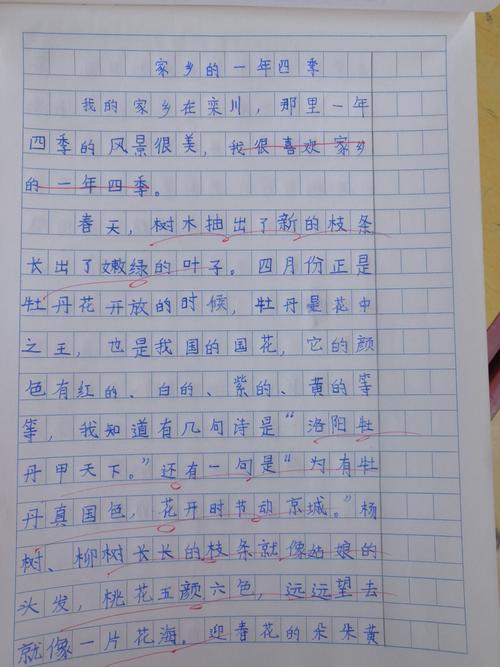 家乡的一年四季
我的家乡在栾川，那里一年
四季的风景很美，我很喜欢家乡
的一年四季。
春天，树木抽出了新的枝条
长出了嫩绿的叶子。四月份正是
牡丹花开放的时候，牡丹是花中
之王，也是我国的国花，它的颜
色有红的、白的、紫的、黄的等
等，我知道有几句诗是“洛阳牡
丹甲天下。”还有一句是“为有牡
丹真国色，花开时节动京城。”杨
树、柳树长长的枝条就像姑娘的
头发，桃花五颜六色，远远望去
就像一片花海。迎春花的朵朵黄